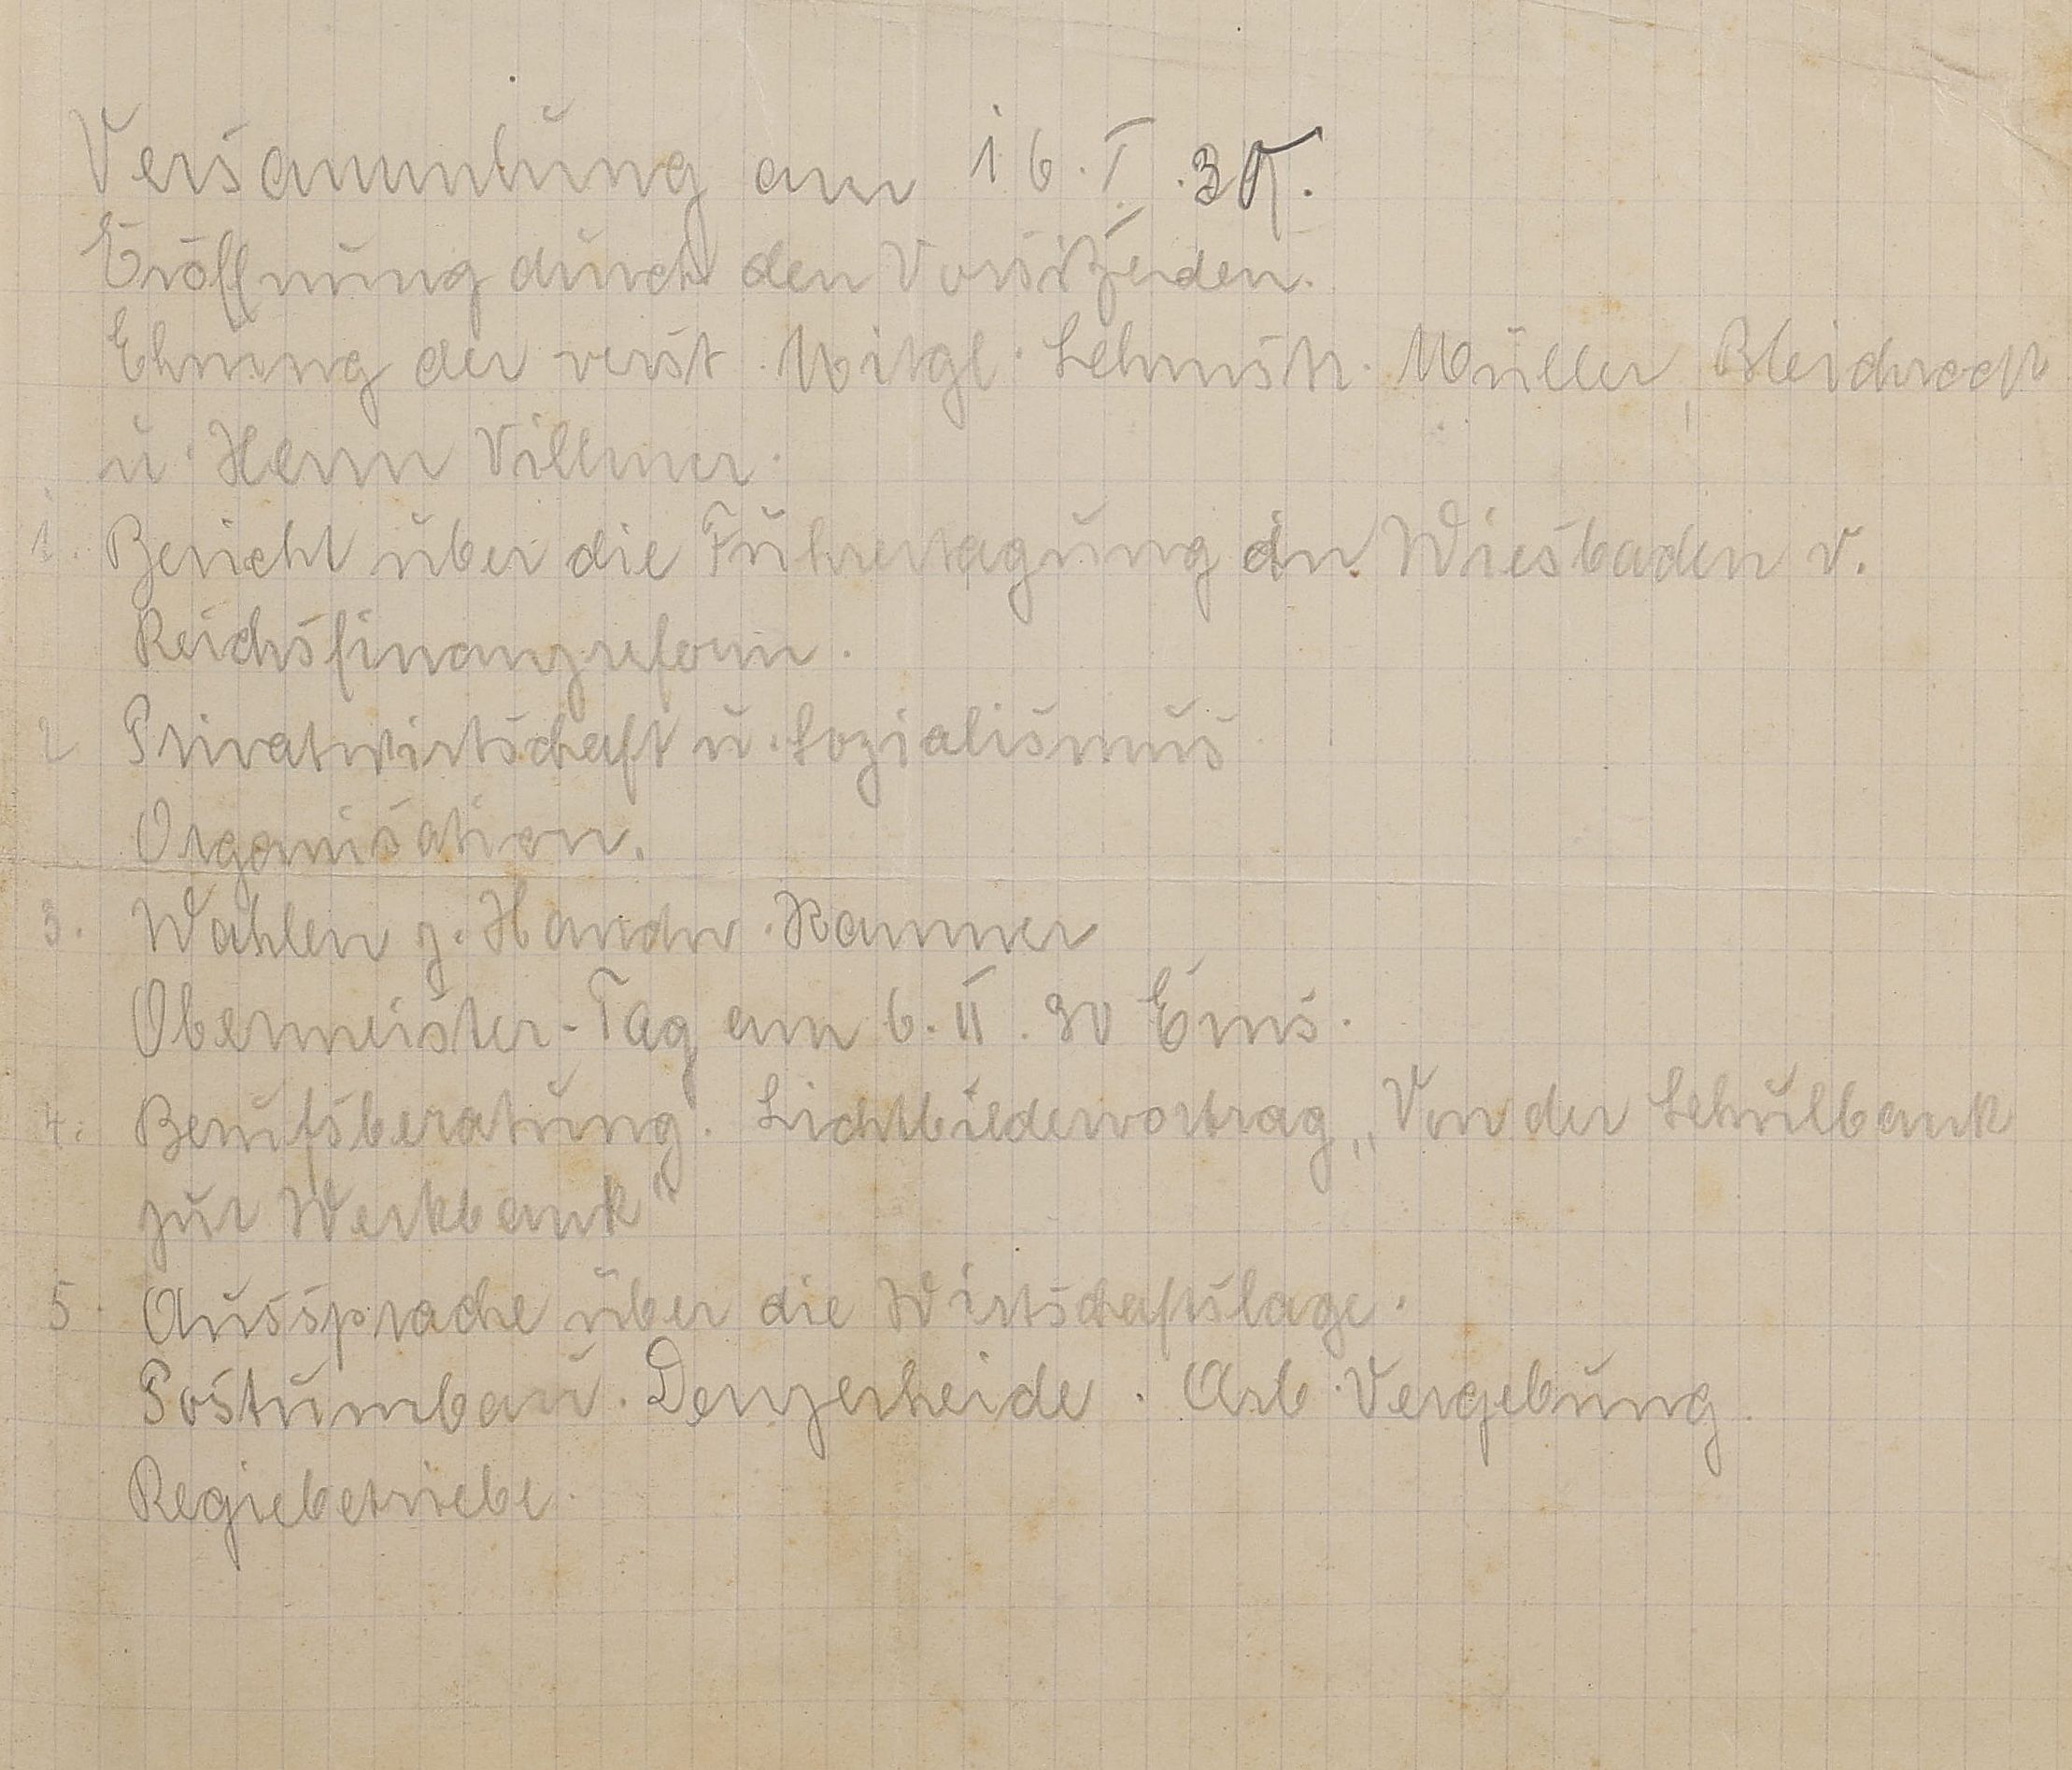 Versammlung am 16. I. 30.
Eröffnung durch den Vorsitzenden.
Ehrung der verst. Mitgl. Müller,
u. Herrn Villmer.
1. Bericht über die Führertagung in Wiesbaden v.
Reichsfinanzreform.
2 Privatwirtschaft u. Sozialismus
Organisation.
3. Wahlen z. Handw. Kammer
Obermeister-Tag am 6. II. 30 Ems.
4. Berufsberatung. Lichtbildervortrag „Von der Schulbank
zur Werkbank"
5. Aussprache über die Wirtschaftslage.
Postumbau. Denzerheide. Arb. Vergebung.
Regiebetriebe.